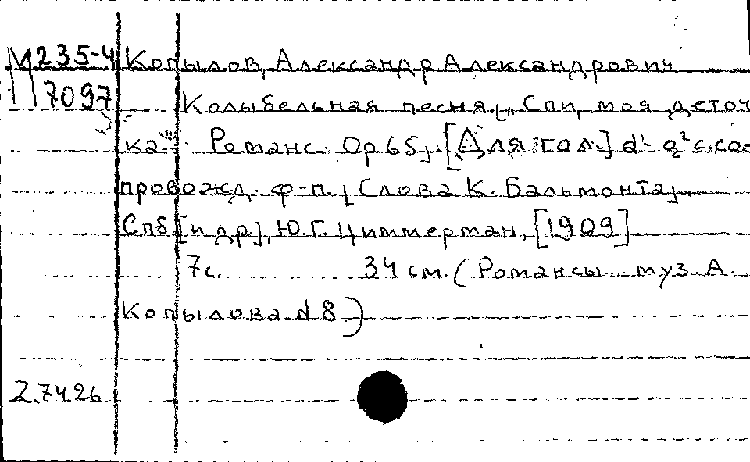 М 235-4 Копылов, Александр Александрович
7097 Колыбельная песня. [„Спи, моя деточ
ка..." Романс. Op 65]. [Для гол.] d¹-g² с соп
провожд. ф-п. [Слова К. Бальмонта]
Спб [и др.], Ю. Г. Циммерман, [1909]
7 с. 34 см. (Романсы муз А.
Копылова № 8)
2.74.26